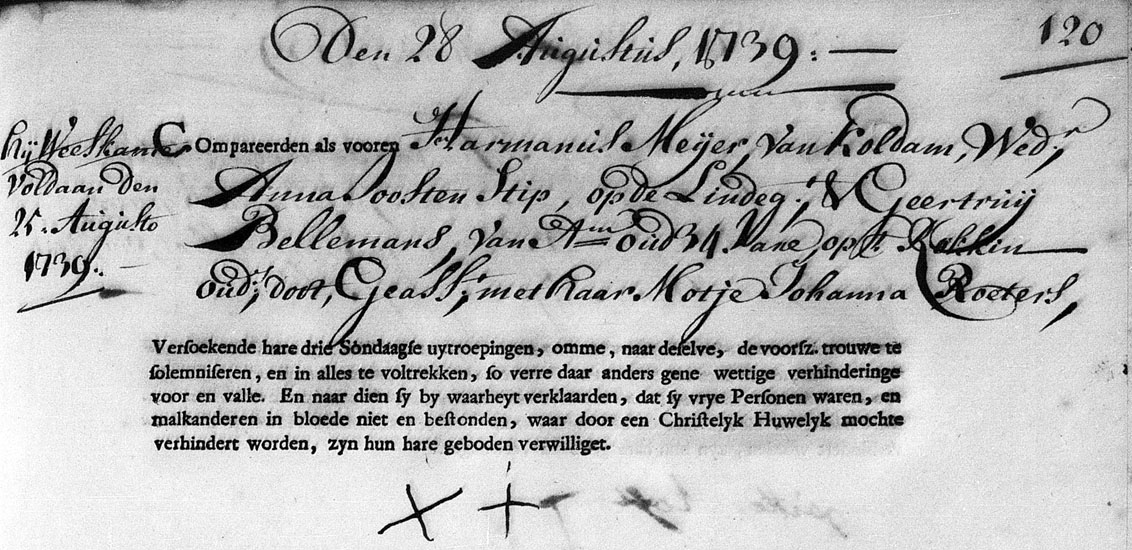 Den 28 Augustus, 1739:
120
hij Weeskamer
Voldaan den
25. Augusto
1739.
Compareerden als vooren Harmanus Meijer, van Koldam, Wedr,
Anna Joosten Stip, op de Lindeg:t, & Geertruij
Bellemans, van Am oud 34 Jare, op 't Rokkin
oud:s, doot, Geasst, met haar Motje Johanna Roeters,
Versoekende hare drie Sondaagse uytroepingen, omme, naar deselve, de voorsz. trouwe te
solemniseren, en in alles te voltrekken, so verre daar anders gene wettige verhinderinge
voor en valle. En naar dien sy by waarheyt verklaarden, dat sy vrye Personen waren, en
malkanderen in bloede niet en bestonden, waar door een Christelyk Huwelyk mochte
verhindert worden, zyn hun hare geboden verwilliget.